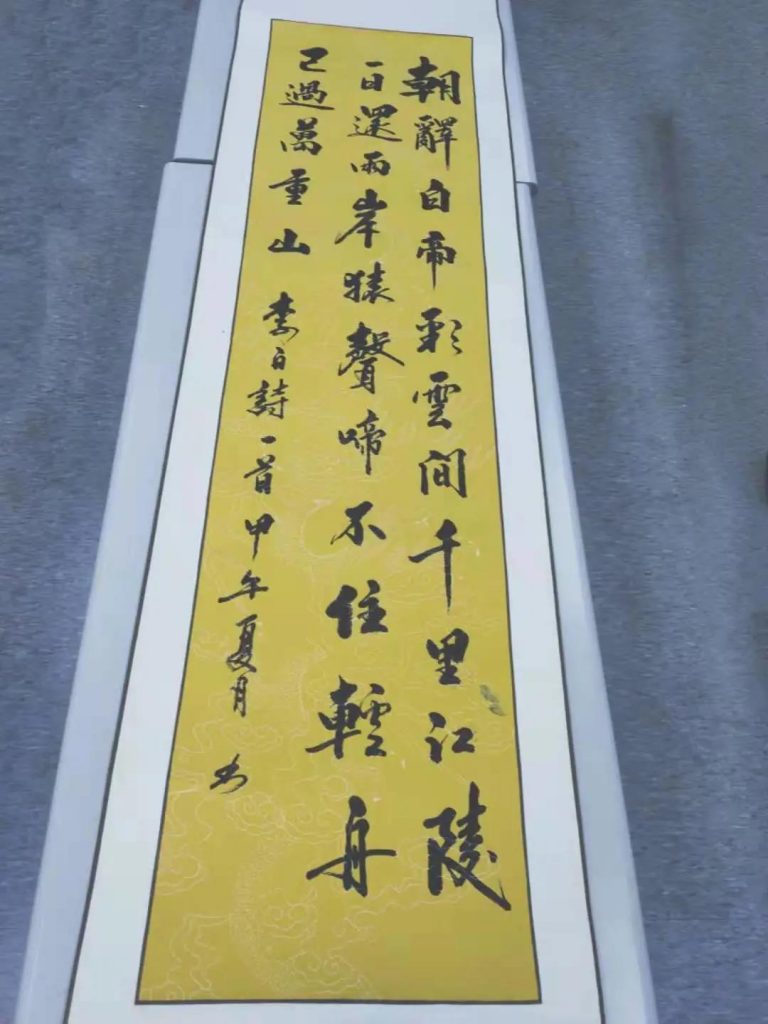 朝辭白帝彩雲间千里江陵
一日還兩岸猿聲啼不住輕舟
已過萬重山 李白詩一首甲午夏月书